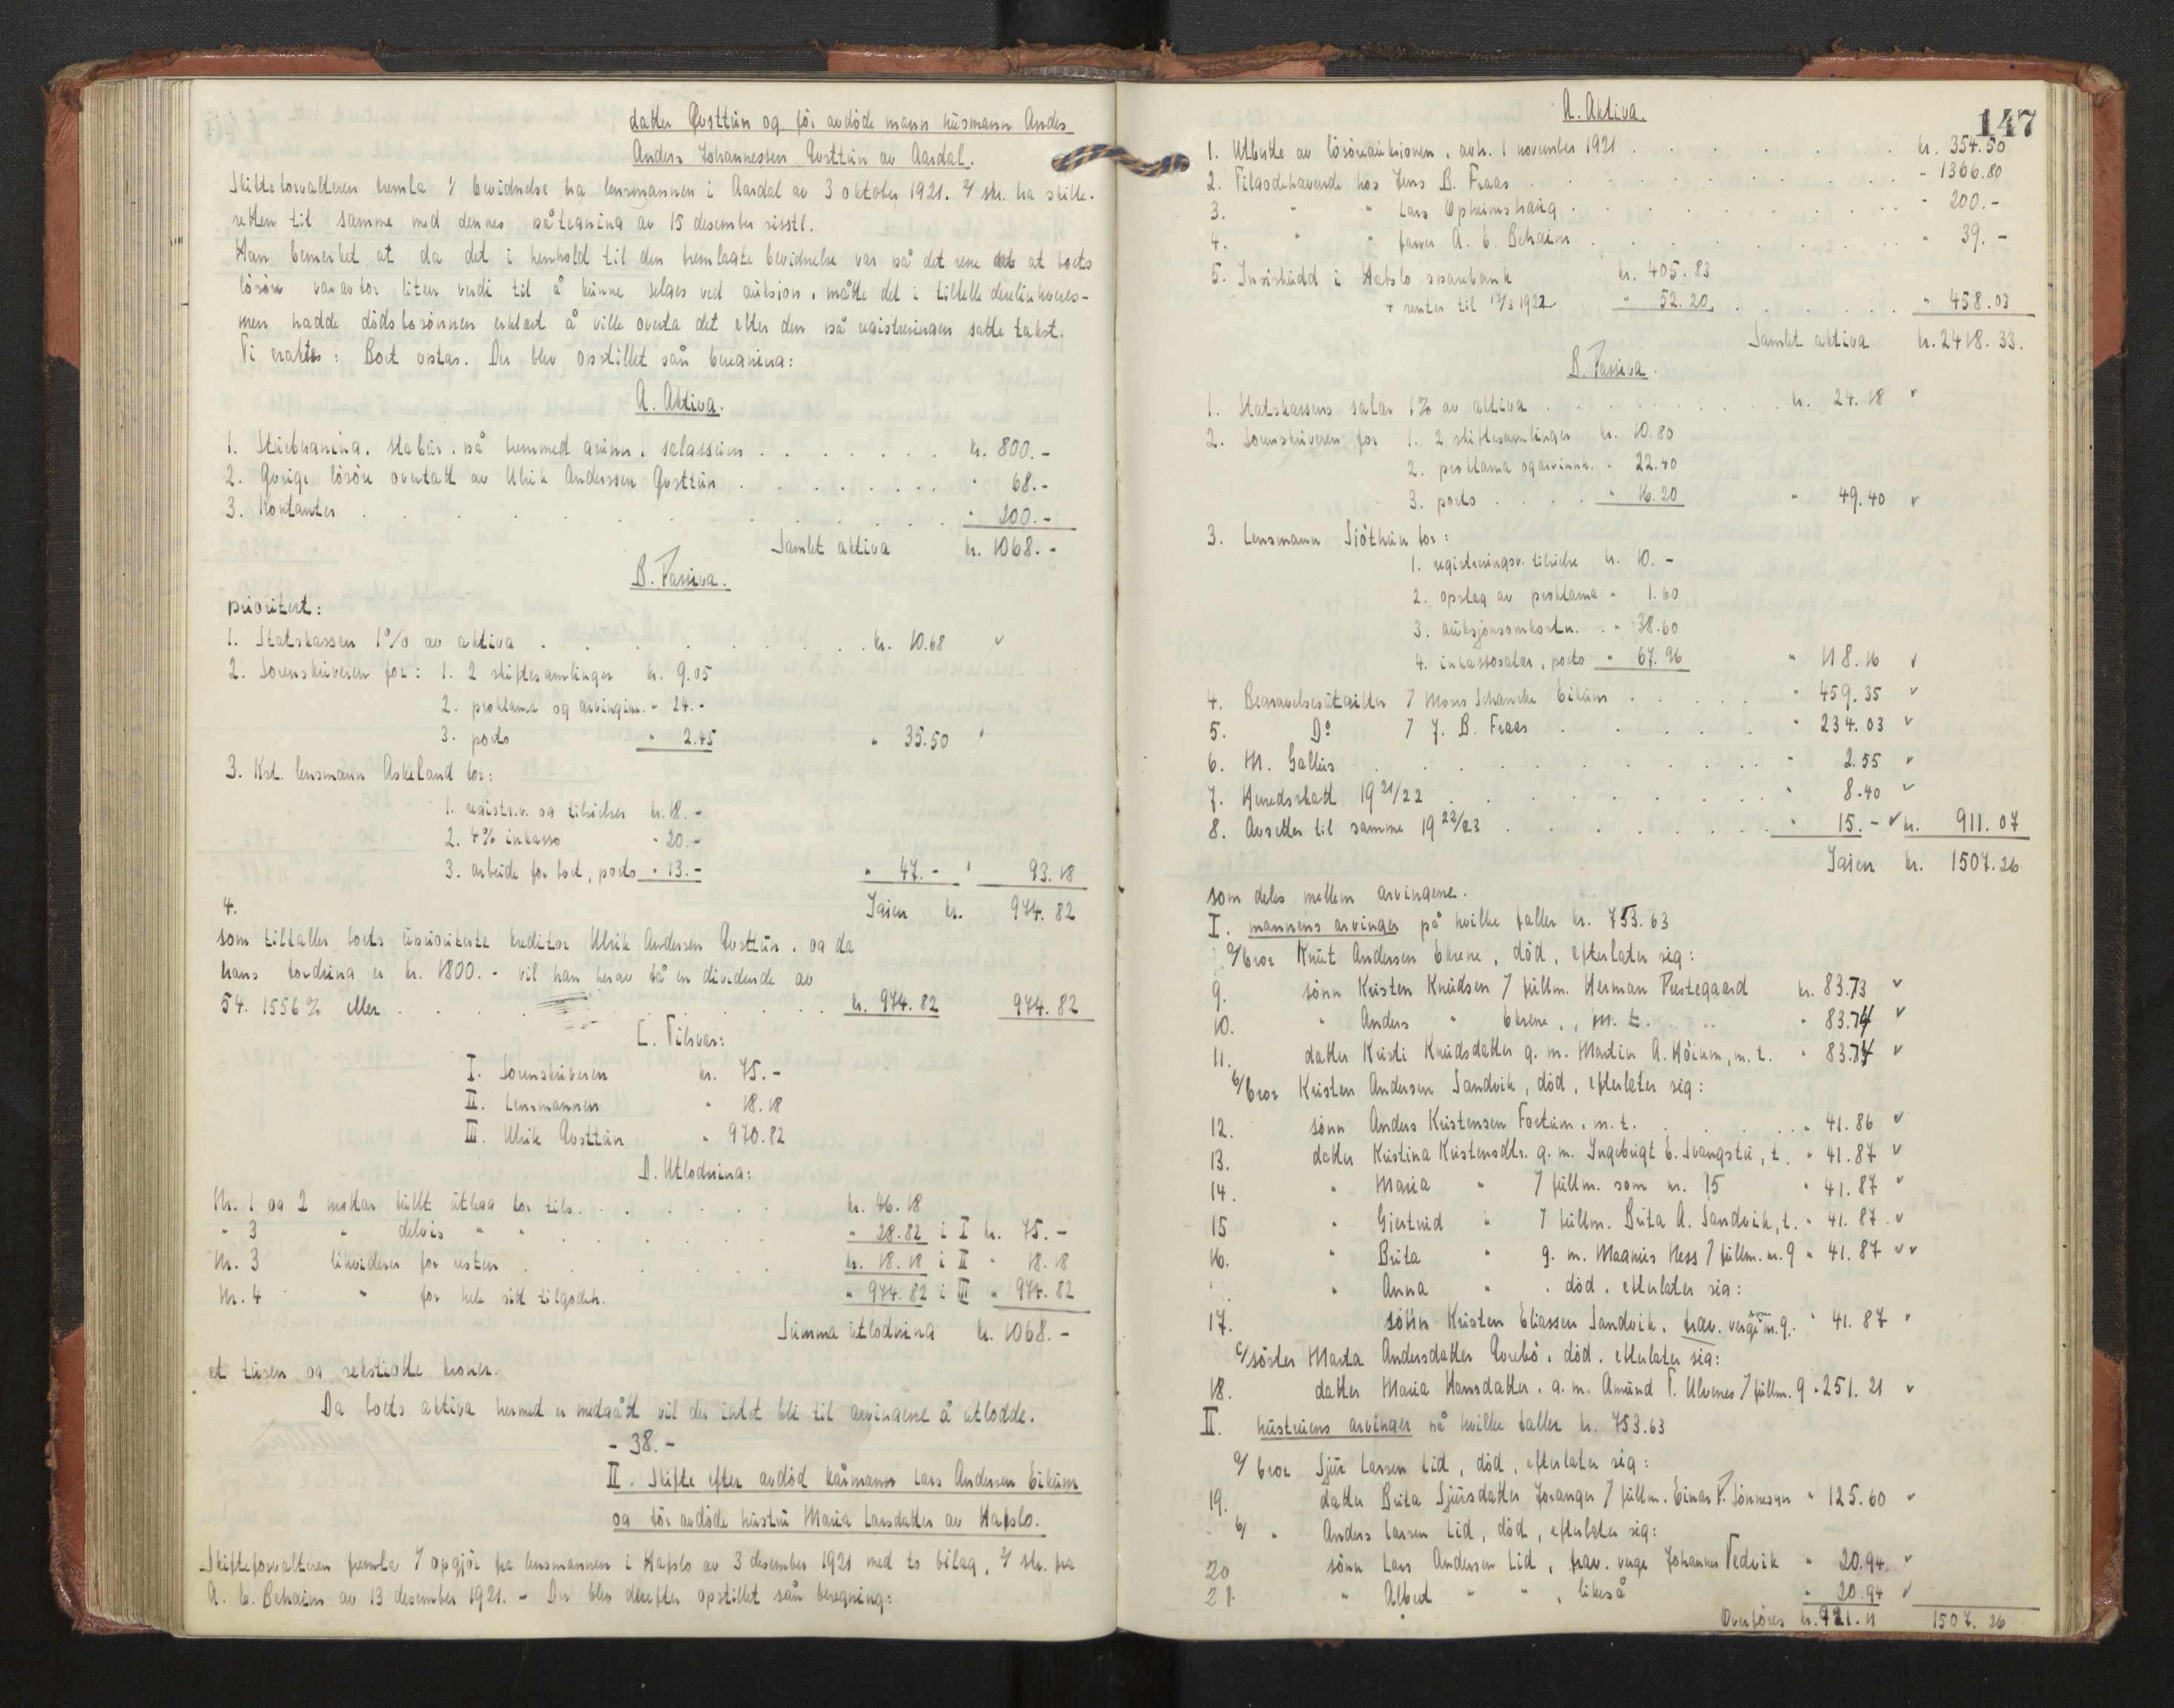 datter Qvsttun og før avdöde mann husmann Andes
Anders Johannessen Qvsttun av Aardal.
Skifteforvalteren fremla 1/ bevidnelse fra lensmannen i Aardal av 3 oktober 1921. 2/ skr. fra skifte-
retten til samme med dennes påtegning av 15 desember sisstl.
Han bemerket at da det i henhold til den fremlagte bevidnelse var på det rene at boets
lösöre var av for liten verdi til å kunne selges ved auksion, måtte det i tilfelle
men hadde dödsbosönnen erklært å ville overta det efter den på registreringen satte takst.
Ti eraktes: Boet optas. Der blev opstillet sån beregning:
A. Aktiva.
1. Stuebygning, stabur, på fremmed grunn, salgssum . . . kr. 800.-
2. Övrige lösöre overtatt av Ulrik Anderssen Qvsttun . . . " 68.-
3. Kontanter . . . " 200.-
Samlet aktiva kr. 1068.-
B. Passiva.
prioritert:
1. Statskassen 1% av aktiva . . . kr. 10.68
2. Sorenskriveren for: 1. 2 skiftesamlinger kr. 9.05
2. proklama og arvinginnk. " 24.-
3. porto " 2.45 " 35.50
3. Kst. lensmann Askeland for:
1. registr.v. og tilsidser kr. 18.-
2. 4% inkasso " 20.-
3. arbeide for boet, porto " 13.- " 47.- 93.18
4. Igjen kr. 974.82
som tilfaller boets uprioriterte kreditor Ulrik Andersen Qvsttun, og da
hans fordring er kr. 1800.- vil han herav få en dividende av
54.1556% eller . . . kr. 974.82 974.82
C. Tilsvar:
I. Sorenskriveren kr. 75.-
II. Lensmannen " 18.18
III. Ulrik Qvsttun " 970.82
D. Utlodning:
Nr. 1 og 2 mottar fullt utlegg for tilg. . . . kr. 46.18
" 3 " delvis " " . . . " 28.82 i I kr. 75.-
Nr. 3 likviderer for resten . . . kr. 18.18 i II " 18.18
Nr. 4 " for hele sitt tilgodeh. " 974.82 i III " 974.82
Summa utlodning kr. 1068.-
et tusen og sekstiotte kroner.
Da boets aktiva hermed er medgått vil der intet bli til arvingene å utlodde.
- 38.-
II. Skifte efter avdöd kårmann Lars Andersen Eikum
og för avdöde hustru Maria Larsdatter av Hafslo.
Skifteforvalteren fremla 1/ opgjör fra lensmannen i Hafslo av 3 desember 1921 med to bilag, 2/ skr. fra
A. E. Beheim av 13 desember 1921. - Der blev derefter opstillet sån beregning:
147
A. Aktiva.
1. Utbytte av lösöreauksionen, avh. 1 november 1921 . . . kr. 354.50
2. Tilgodehavende hos Jens B. Fraas . . . " 1366.80
3. " " Lars Opheimshaug . . . " 200.-
4. " " farver A. E. Beheim . . . " 39.-
5. Innskudd i Hafslo sparebank kr. 405.83
+ renter til 17/3 1922 " 52.20 . . . " 458.03
Samlet aktiva kr. 2418.33.
B. Passiva.
1. Statskassens salær 1% av aktiva . . . kr. 24.18
2. Sorenskriveren for 1. 2 skiftesamlinger kr. 10.80
2. proklama og arvinnk. " 22.40
3. porto . . . " 16.20 " 49.40
3. Lensmann Sjöthun for:
1. registreringsv. tilsidse kr. 10.-
2. opslag av proklama " 1.60
3. auksjonsomkostn. . " 38.60
4. inkassosalær, porto " 67.96 " 118.16
4. Begravelsesutgifter 7 Moses Schancke Eikum . . . " 459.35
5. Do 7 J. B. Fraas . . . " 234.03
6. M. Galleis . . . " 2.55
7. Heredsskatt 1921/22 . . . " 8.40
8. Avsettes til samme 1922/23 . . . " 15.- kr. 911.07
Igjen kr. 1507.26
som deles mellem arvingene.
I. mannens arvinger på hvilke faller kr. 753.63
a/ bror Knut Andersen Ekrene, död, efterlater sig:
9. sönn Kristen Knudsen 7 fullm. Herman Prestegaard kr. 83.73
10. " Anders " Ekrene, m. t. . . " 83.74
11. datter Kristi Knudsdatter g. m. Martin A. Höium, m. t. " 83.74
b/ bror Kristen Andersen Sandvik, död, efterlater sig:
12. sönn Anders Kristensen Fortun, m. t. . . . " 41.86
13. datter Kristina Kristensdtr. g. m. Ingebrigt E. Svangstu, t. " 41.87
14. " Maria " 7 fullm. som nr. 15 " 41.87
15 " Gjertrud " 7 fullm. Brita A. Sandvik, t. " 41.87
16. " Brita " g. m. Magnus Hess 7 fullm. nr. 9 " 41.87
" Anna " . död, efterlater sig:
17. sönn Kristen Eliassen Sandvik, frav. verge som nr. 9. " 41.87
c/ söster Marta Andersdatter Qvrebö, död, efterlater sig:
18. datter Maria Hansdatter, g. m. Amund T. Ulvenes 7 fullm. 9 " 251.21
II. hustruens arvinger på hvilke faller kr. 753.63
a/ bror Sjur Larsen Lid, död, efterlater sig:
19. datter Brita Sjursdatter Joranger 7 fullm. Einar P. Sönnesyn " 125.60
b/ " Anders Larsen Lid, död, efterlater sig:
20 sönn Lars Andersen Lid, frav. verge Johannes Vedvik " 20.94
21. " Albert " " , likeså " 20.94
Overföres kr. 921.11 1507.26